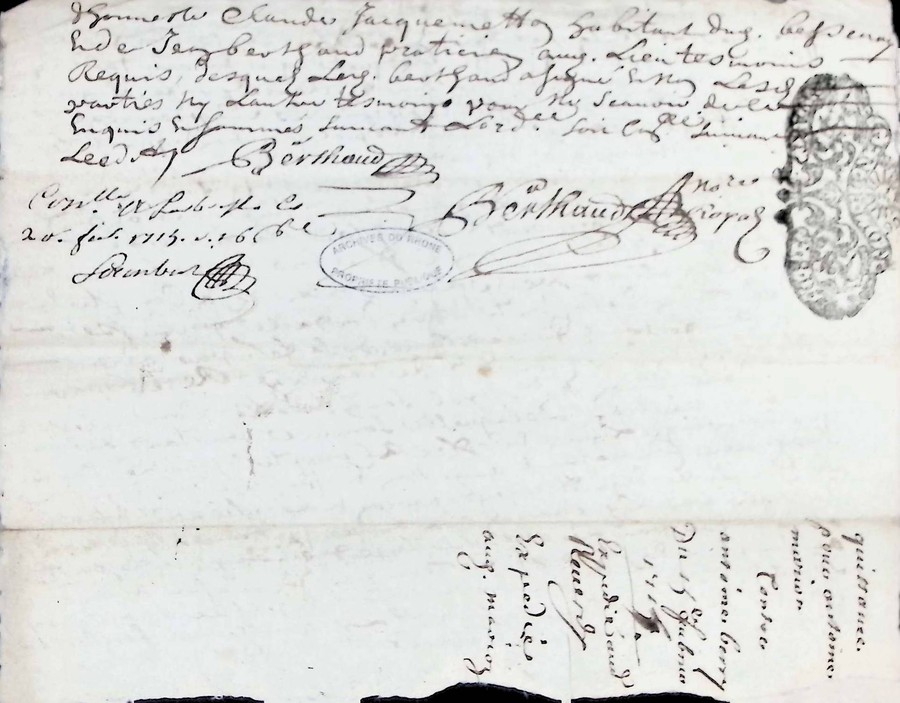 Honneste Claude Jacquemetton habitant dud. bessenay
Et de Jean berthaud praticien aud. Lieu tesmoins
Requis, desquels Led. berthaud a signé Et non Lesd.
parties Ny Lautre tesmoing pour Ny Scavoir de ce
Enquis Et sommés suivant Lord.ce Soit Con.llé suivant
Leedit
Berthaud
Berthaud
Not.re Royal
Con.llé
20e feb. 1715.
ARCHIVES DU RHONE
PROPRIÉTÉ PUBLIQUE
quittance
pour antoine
marion
Contre
antoine berry
Du 15e febvrier
1715
Expedié aud.
Expedié
aud. marion